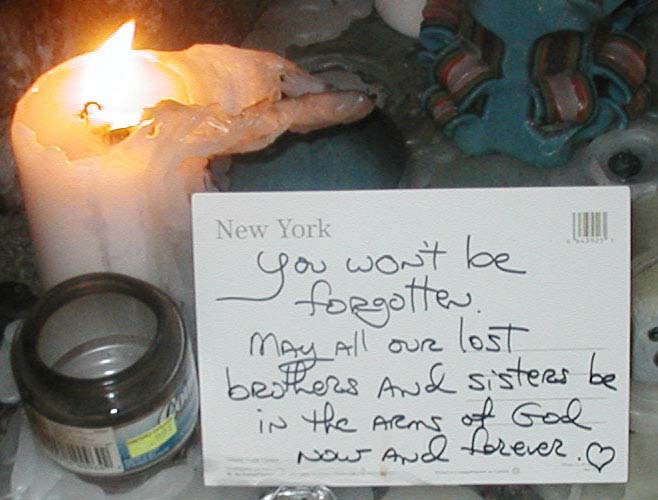 New York
You won't be
forgotten.
May All our lost
brothers And sisters be
in the Arms of God
Now And forever. ♡